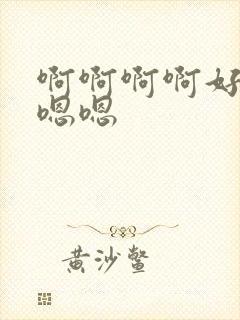 啊啊啊啊好
嗯嗯
黄沙鳖